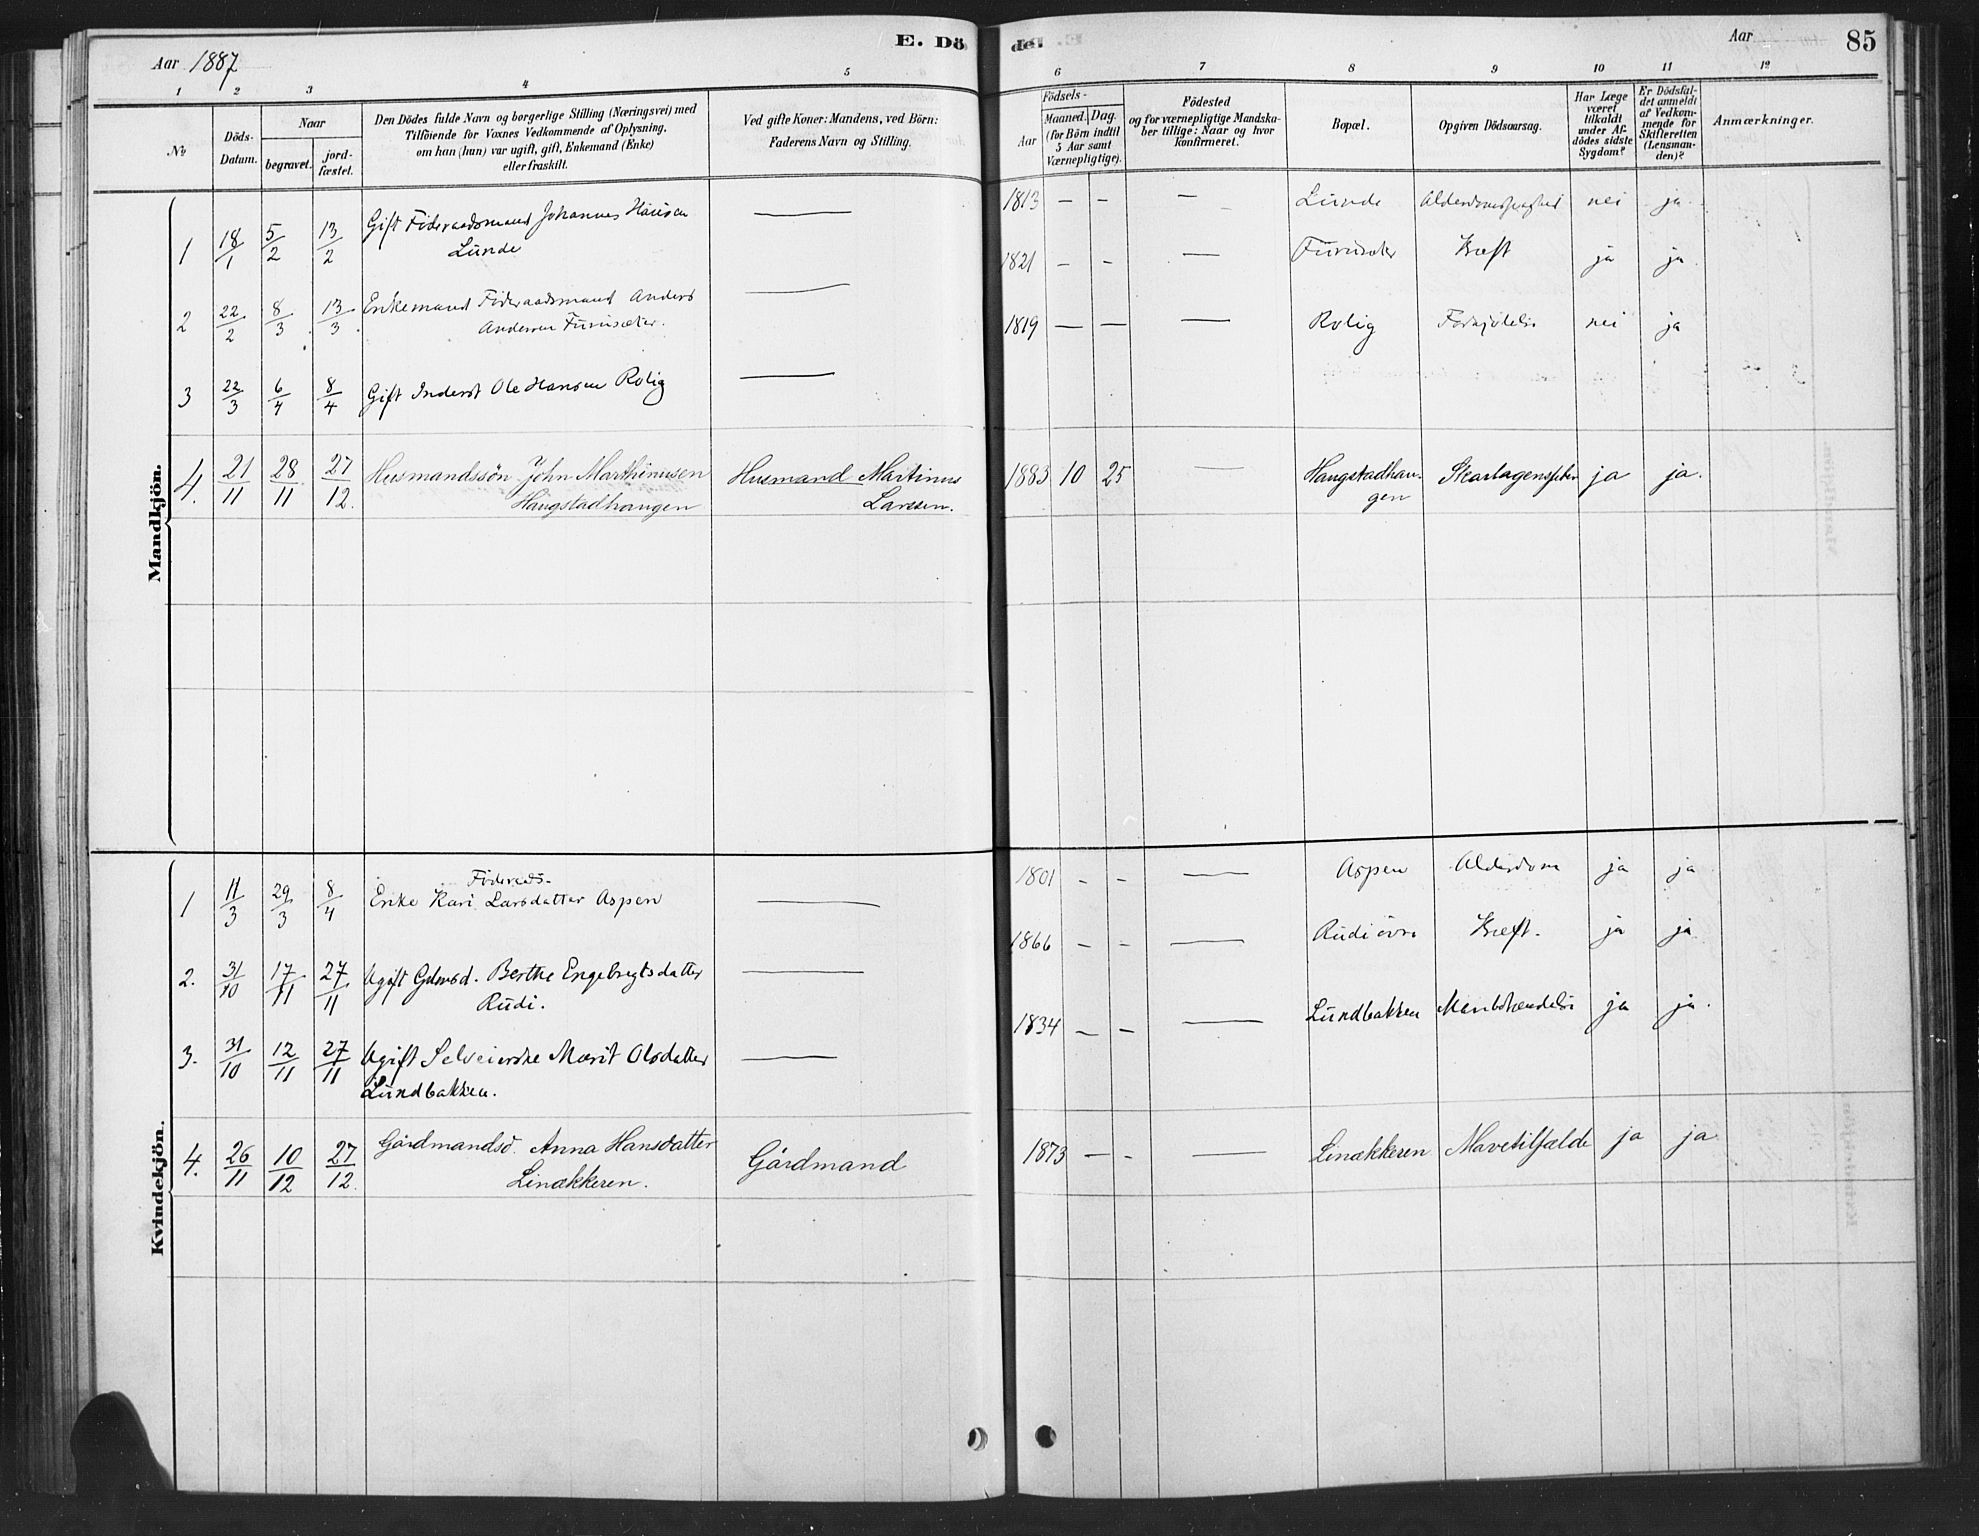 Aar 1887
E. Dö
de.
Aar
85
1 2 3 4 5 6 7 8 9 10 11 12
No
Döds-Datum.
Naar
begravet.
jord-fæstet.
Den Dödes fulde Navn og borgerlige Stilling (Næringsvei) med
Tilföiende for Voxnes Vedkommende af Oplysning,
om han (hun) var ugift, gift, Enkemand (Enke)
eller fraskilt.
Ved gifte Koner: Mandens, ved Börn:
Faderens Navn og Stilling.
Födsels-
Aar
Maaned. Dag.
(for Börn indtil
5 Aar samt
Værnepligtige).
Födested
og for værnepligtige Mandska-
ber tillige: Naar og hvor
konfirmeret.
Bopæl.
Opgiven Dödsaarsag.
Har Læge
været
tilkaldt
under Af-
dödes sidste
Sygdom?
Er Dödsfal-
det anmeldt
af Vedkom-
mende for
Skifteretten
(Lensman-
den)?
Anmærkninger.
Mandkjön.
1 18/1 5/2 13/2 Gift Föderaadsmand Johannes Hansen — 1813 — — — Lunde nei ja
Lunde
2 22/2 8/3 13/3 Enkemand Föderaadsmand Anders — 1821 — — — Furusæter Kræft ja ja.
Andersen Furusæter.
3 22/3 6/4 8/4 Gift Inderst Ole Hansen Rolig — 1819 — — — Rolig Forkjölelse nei ja
4. 21/11 28/11 27/12. Husmandssön John Marthinusen Husmand Martinus 1883 10 25 — Haugstadhau- ja ja.
Haugstadhaugen Larsen. gen
Kvindekjön.
Föderaads-
1 11/3 29/3 8/4 Enke Kari Larsdatter Aspen — 1801 — — — Aspen Alderdom ja ja
2. 31/10 17/11 27/11 Ugift Gdmsd. Berthe Engebregtsdatter — 1866 — — — Rudi övre Kræft. ja ja
Rudi.
3. 31/10 12/11 27/11 Ugift Selveierske Marit Olsdatter — 1834 — — — Lundbakken ja ja.
Lundbakken.
4. 26/11 10/12 27/12. Gårdmandsd. Anna Hansdatter Gårdmand 1873 — — — Linækkeren Mavetilfælde ja ja
Linækkeren.